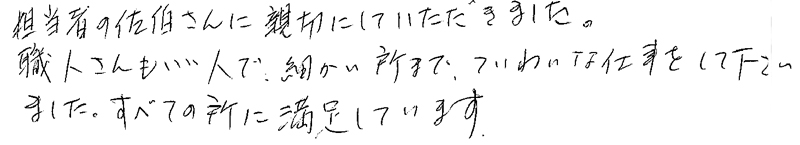 担当者の佐伯さんに親切にしていただきました。
職人さんもいい人で、細かい所まで、ていねいな仕事をして下さい
ました。すべての所に満足しています